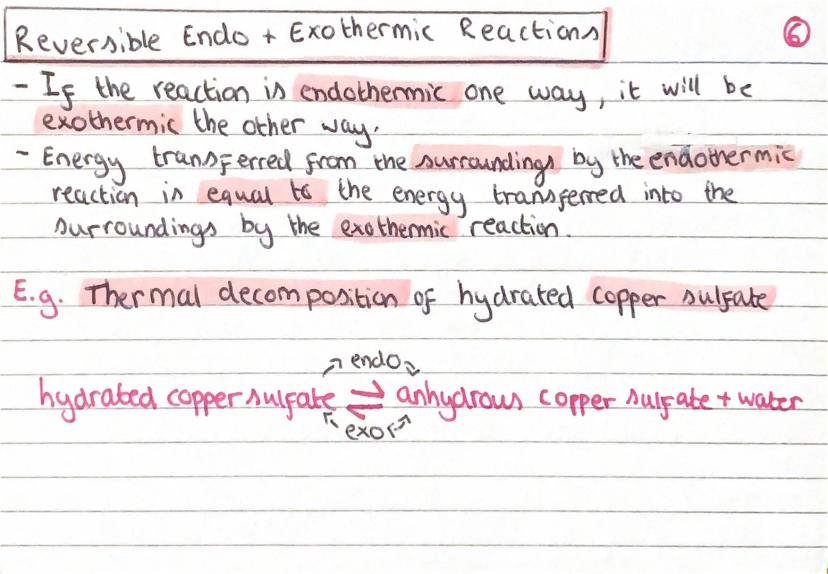 Reversible Endo + Exothermic Reactions
6
- If the reaction is endothermic one way, it will be
exothermic the other way.
- Energy transferred from the surroundings by the endothermic
reaction is equal to the energy transferred into the
surroundings by the exothermic reaction.
E.g. Thermal decomposition of hydrated copper sulfate
endo
hydrated copper sulfate ⇌ anhydrous copper sulfate + water
exo